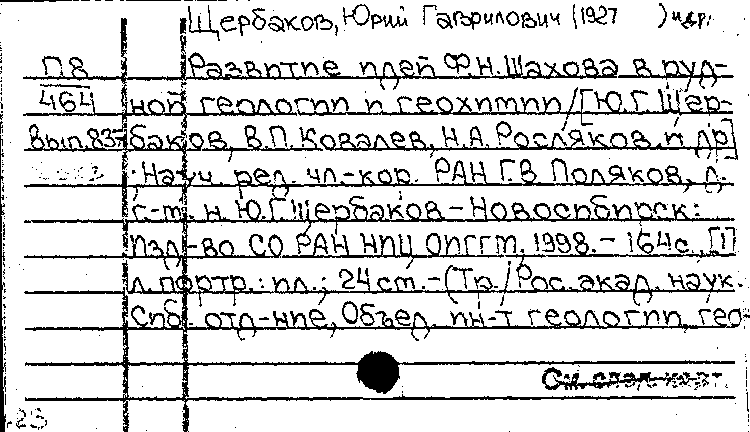 Щербаков, Юрий Гаврилович (1927 ) и др.
П8 Развитие идей Ф.Н. Шахова в руд-
464 ной геологии и геохимии / [Ю.Г. Щер-
Вып.837 баков, В.П. Ковалев, Н.А. Росляков и др]
; Науч. ред. чл.-кор. РАН Г.В Поляков, д.
г.-м. н Ю.Г. Щербаков – Новосибирск:
Изд-во СО РАН НИЦ ОИГГМ, 1998. – 164с., [1]
л. портр.: ил.; 24 см. – (Тр. / Рос. акад. наук.
Сиб. отд-ние, Объед. ин-т геологии, гео-
См. след. карт.
23